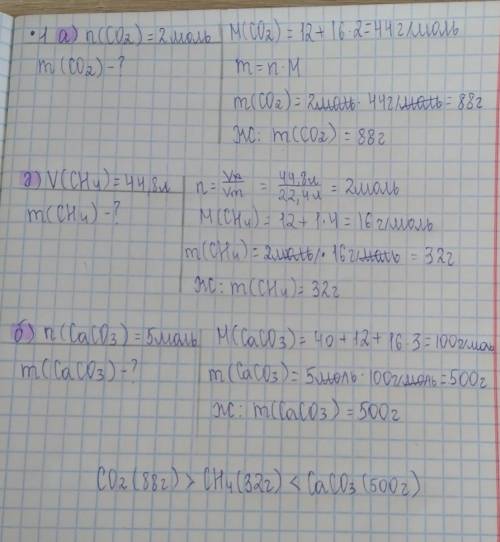 •1 а) n(CO₂) = 2 моль M(CO₂) = 12 + 16·2 = 44 г/моль
m(CO₂) - ? m = n·M
m(CO₂) = 2моль · 44г/моль = 88г
ЖС: m(CO₂) = 88г
д) V(CH₄) = 44,8л n = Vn/Vm = 44,8л/22,4л = 2моль
m(CH₄) - ? M(CH₄) = 12 + 1·4 = 16г/моль
m(CH₄) = 2моль · 16г/моль = 32г
ЖС: m(CH₄) = 32г
б) n(CaCO₃) = 5моль M(CaCO₃) = 40 + 12 + 16·3 = 100г/моль
m(CaCO₃) - ? m(CaCO₃) = 5моль · 100г/моль = 500г
ЖС: m(CaCO₃) = 500г
CO₂(88г) > CH₄(32г) < CaCO₃(500г)